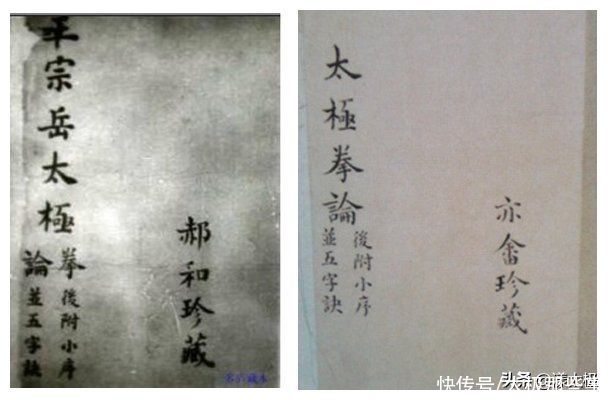 宗岳太極
拳後附小序
論並五字訣
郝和珍藏
太極拳論
後附小序
並五字訣
亦畬珍藏
藏本
快传号/太极
头条